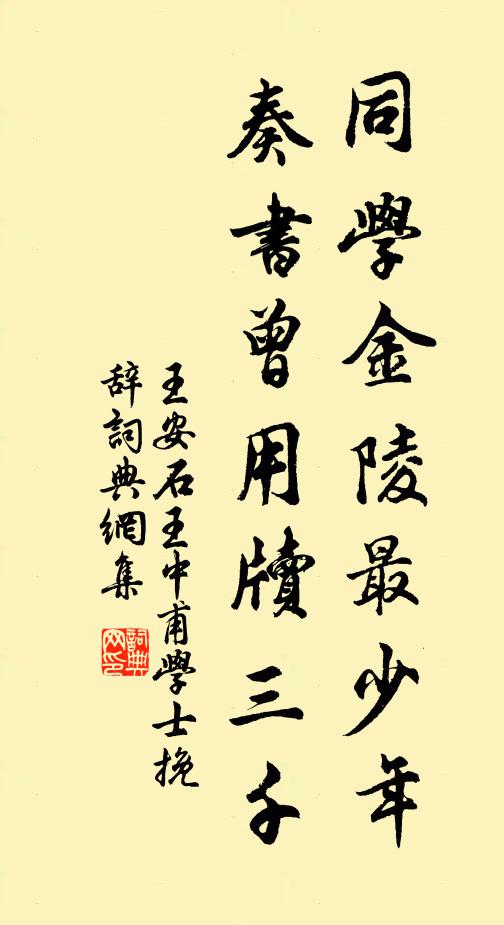 同學金陵最少年
奏書曾用牘三千
王安石王中甫學士挽
辞詞典網集
詞典
网印